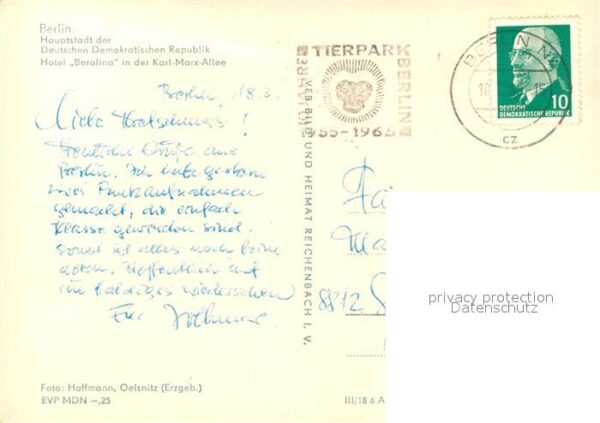 Berlin
Hauptstadt der
Deutschen Demokratischen Republik
Hotel „Berolina" in der Karl-Marx-Allee
Berlin, 18.3.
Liebe
Herzliche Grüße aus
Berlin. Ich habe gestern
zwei Funkaufnahmen
gemacht, die einfach
Klasse geworden sind.
Sonst ist alles noch beim
alten. Hoffentlich auf
ein baldiges Wiedersehen
Foto: Hoffmann, Oelsnitz (Erzgeb.)
EVP MDN –,25
VEB BILD UND HEIMAT REICHENBACH I. V.
III/18 6 A
TIERPARK
BERLIN
55-1965
BERLIN
18
15
cz
DEUTSCHE
DEMOKRATISCHE REPUBLIK
10
Fa
Ma
privacy protection
Datenschutz